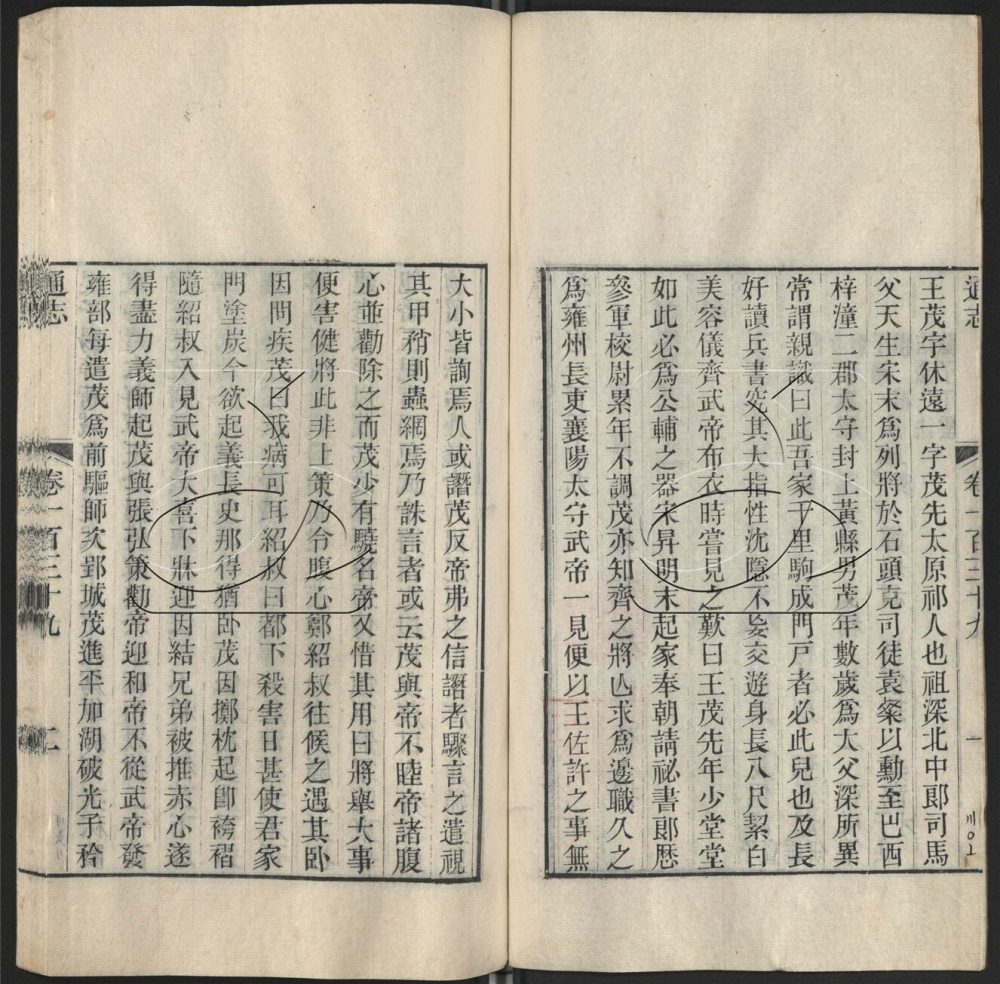 通志
卷一百三十九
一
王茂字休遠一字茂先太原祁人也祖深北中郎司馬
父天生宋末爲列將於石頭克司徒袁粲以勳至巴西
梓潼二郡太守封上黃縣男茂年數歲爲大父深所異
常謂親識曰此吾家千里駒成門戸者必此兒也及長
好讀兵書究其大指性沈隱不妄交遊身長八尺絜白
美容儀齊武帝布衣時嘗見之歎曰王茂先年少堂堂
如此必爲公輔之器宋昇明末起家奉朝請祕書郎歷
參軍校尉累年不調茂亦知齊之將亾求爲邊職久之
爲雍州長吏襄陽太守武帝一見便以王佐許之事無
大小皆詢焉人或譖茂反帝弗之信譖者驟言之遣視
其甲矟則蟲網焉乃誅言者或云茂與帝不睦帝諸腹
心並勸除之而茂少有驍名帝又惜其用曰將舉大事
便害健將此非上策乃令腹心鄭紹叔往候之遇其卧
因問疾茂曰我病可耳紹叔曰都下殺害日甚使君家
門塗炭今欲起義長史那得猶卧茂因擲枕起卽袴褶
隨紹叔入見武帝大喜下牀迎因結兄弟被推赤心遂
得盡力義師起茂與張弘策勸帝迎和帝不從武帝發
雍部每遣茂爲前驅師次郢城茂進平加湖破光子衿
通志
卷一百三十九
二